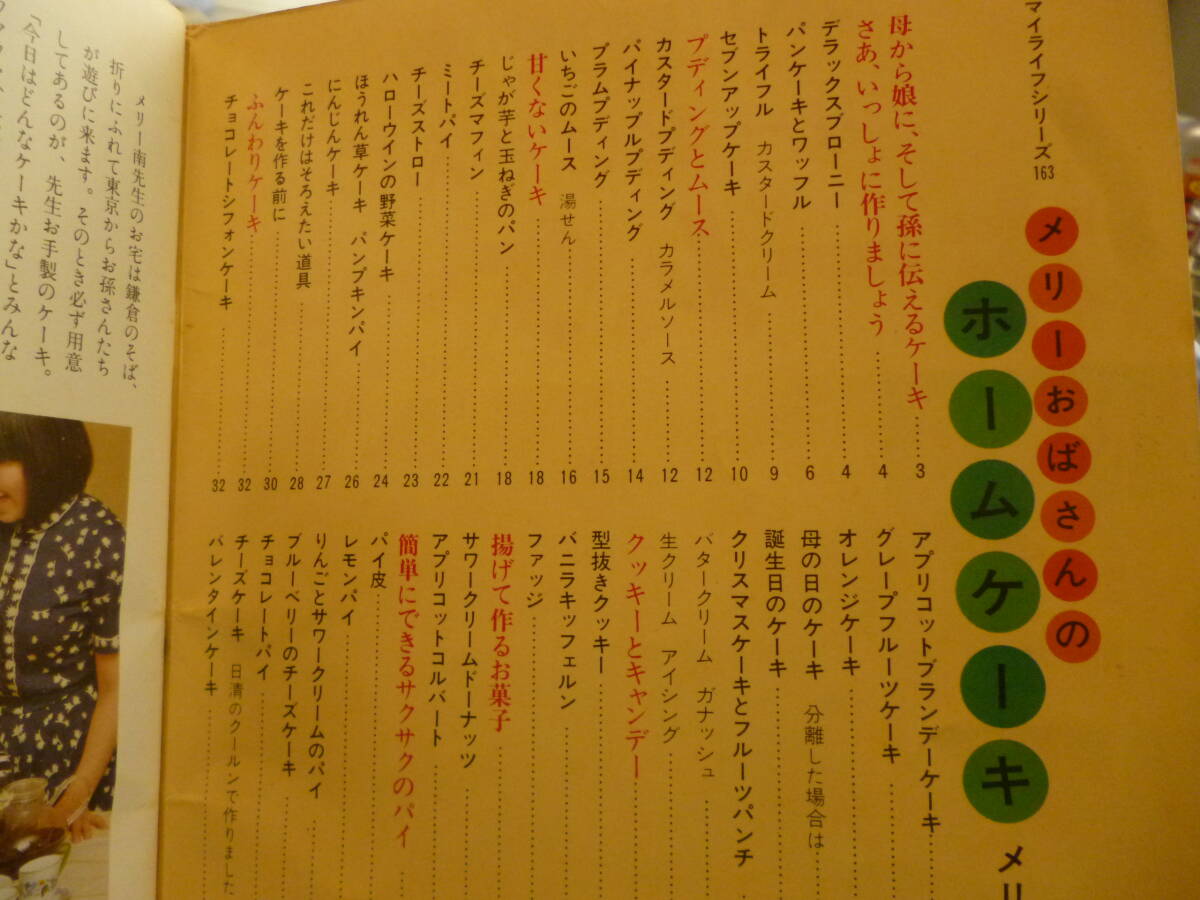 マイライフシリーズ 163
メリーおばさんの
ホームケーキ
母から娘に、そして孫に伝えるケーキ 3
さあ、いっしょに作りましょう 4
デラックスブローニー 4
パンケーキとワッフル 6
トライフル カスタードクリーム 9
セブンアップケーキ 10
プディングとムース 12
カスタードプディング カラメルソース 12
パイナップルプディング 14
プラムプディング 15
いちごのムース 湯せん 16
甘くないケーキ 18
じゃが芋と玉ねぎのパン 18
チーズマフィン 21
ミートパイ 22
チーズストロー 23
ハローウインの野菜ケーキ 24
ほうれん草ケーキ パンプキンパイ 26
にんじんケーキ 27
これだけはそろえたい道具 28
ケーキを作る前に 30
ふんわりケーキ 32
チョコレートシフォンケーキ 32
アプリコットブランデーケーキ
グレープフルーツケーキ
オレンジケーキ
母の日のケーキ 分離した場合は
誕生日のケーキ
クリスマスケーキとフルーツパンチ
バタークリーム ガナッシュ
生クリーム アイシング
クッキーとキャンデー
型抜きクッキー
バニラキッフェルン
ファッジ
揚げて作るお菓子
サワークリームドーナッツ
アプリコットコルバート
簡単にできるサクサクのパイ
パイ皮
レモンパイ
りんごとサワークリームのパイ
ブルーベリーのチーズケーキ
チョコレートパイ
チーズケーキ 日清のクールンで作りました
バレンタインケーキ
メリー南先生のお宅は鎌倉のそば、
折りにふれて東京からお孫さんたち
が遊びに来ます。そのとき必ず用意
してあるのが、先生お手製のケーキ。
「今日はどんなケーキかな」とみんな